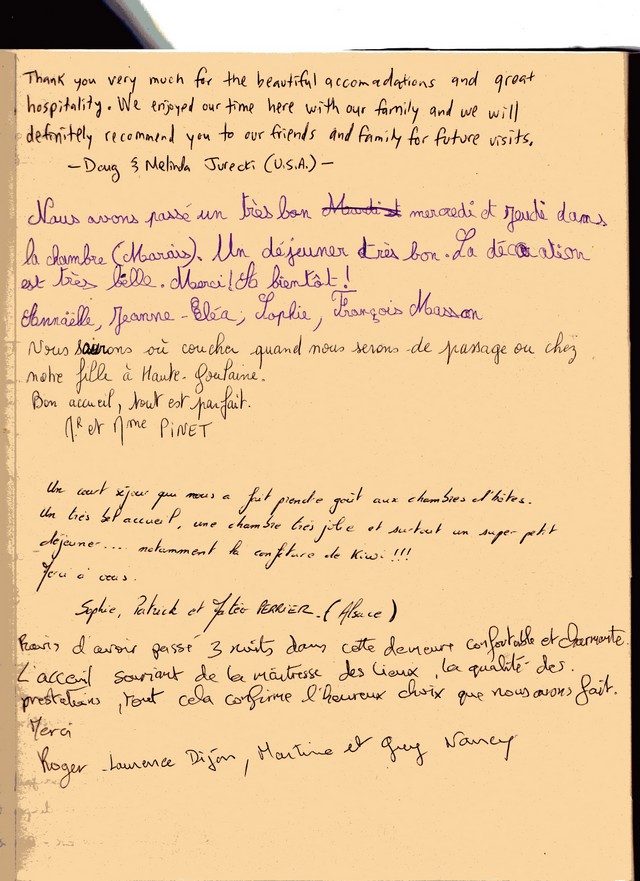 Thank you very much for the beautiful accomadations and great
hospitality. We enjoyed our time here with our family and we will
definitely recommend you to our friends and family for future visits.
— Doug & Melinda Jurecki (U.S.A.) —
Nous avons passé un très bon mercredi et jeudi dans
la chambre (Marais). Un déjeuner très bon. La décoration
est très belle. Merci! A bientôt!
Annaëlle, Jeanne-Eléa, Sophie, François Masson
Nous saurons où coucher quand nous serons de passage ou chez
notre fille à Haute-Goulaine.
Bon accueil, tout est parfait.
Mr et Mme PINET
Un court séjour que nous a fait prendre goût aux chambres d'hôtes.
Un très bel accueil, une chambre très jolie et surtout un super petit
déjeuner.... notamment la confiture de Kiwi !!!
Merci à vous.
Sophie, Patrick et PERRIER. (Alsace)
Ravis d'avoir passé 3 nuits dans cette demeure confortable et charmante.
L'acceuil souriant de la maîtresse des lieux, la qualité des
prestations, tout cela confirme l'heureux choix que nous avons fait.
Merci
Roger - Laurence Dijon, Martine et Guy Nancy